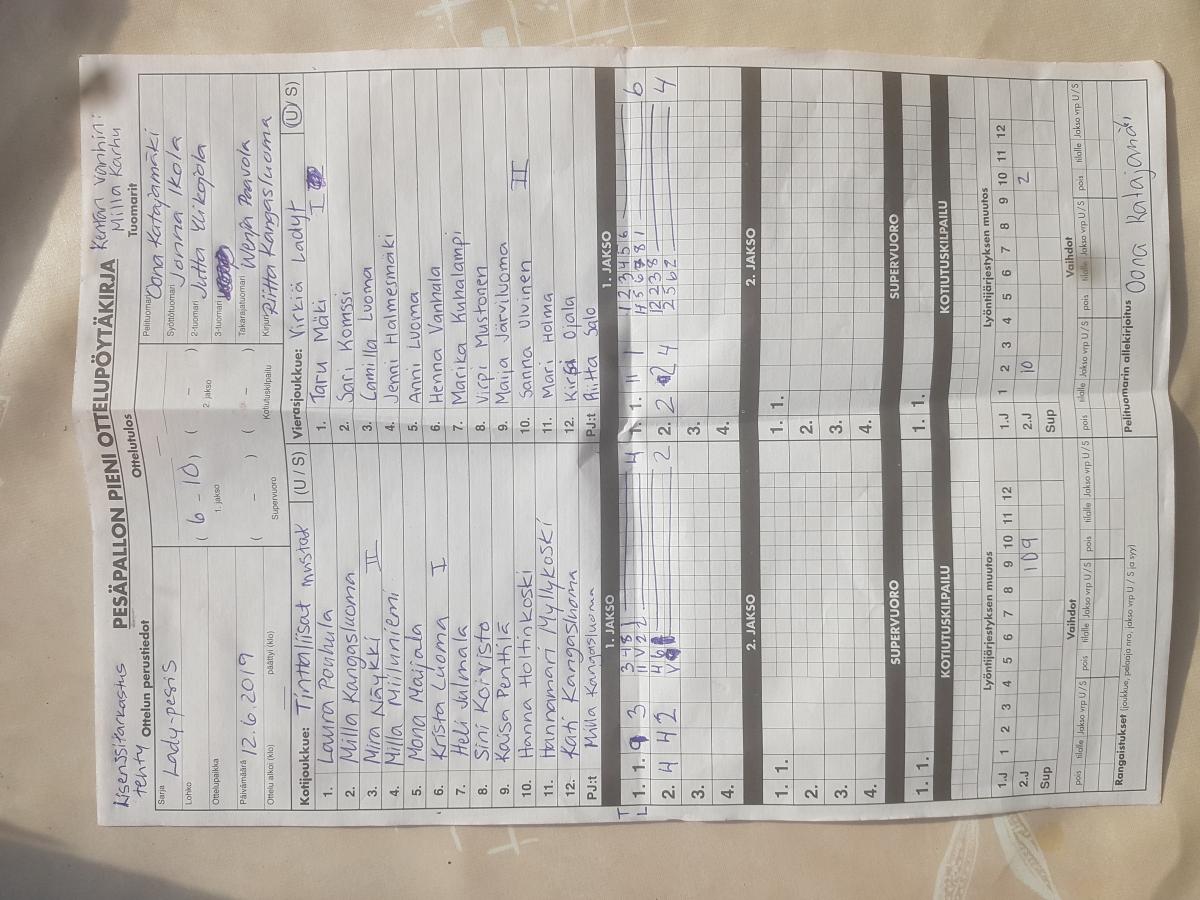 PESÄPALLON PIENI OTTELUPÖYTÄKIRJA
Kentän vanhin:
Milla Karhu
Lisenssitarkastus
tehty
Ottelun perustiedot
Ottelutulos
Tuomarit
Sarja Lady-pesis
Lohko
Ottelupaikka
Päivämäärä 12.6.2019
Ottelu alkoi (klo) päättyi (klo)
( 6 - 10 ) ( - )
1. jakso 2. jakso
( - ) ( - )
Supervuoro Kotiutuskilpailu
Pelituomari Oona Katajamäki
Syöttötuomari Jenna Ikola
2-tuomari Jutta Ylikojola
3-tuomari
Takarajatuomari Wenja Paavola
Kirjuri Riitta Kangasluoma
Kotijoukkue: Tinttaliisat mustat (U / S)
1. Laura Pouhula
2. Milla Kangasluoma
3. Mira Näykki II
4. Milla Miilunniemi
5. Mona Maijala
6. Krista Luoma I
7. Heli Julmala
8. Sini Koivisto
9. Kaisa Penttilä
10. Hanna Holtinkoski
11. Hannamari Myllykoski
12. Kati Kangasluoma
PJ:t Milla Kangasluoma
Vierasjoukkue: Virkiä Ladyt (U / S)
1. Taru Mäki I
2. Sari Komssi
3. Camilla Luoma
4. Jenni Halmesmäki
5. Anni Luoma
6. Henna Vanhala
7. Marika Kuhalampi
8. Virpi Mustonen
9. Maija Järviluoma
10. Sanna Ulvinen II
11. Mari Holma
12. Kirsi Ojala
PJ:t Riitta Salo
1. JAKSO 1. JAKSO
T
L
1. 1. 3 4
2. 4 4 2 2
3.
4.
1. 1. 11 1 1 2 3 4 5 6 6
4 5 6 7 8 1
2. 2 2 4 12 2 3 8 4
2 5 6 2
3.
4.
2. JAKSO 2. JAKSO
1. 1. 1. 1.
2. 2.
3. 3.
4. 4.
SUPERVUORO SUPERVUORO
1. 1. 1. 1.
KOTIUTUSKILPAILU KOTIUTUSKILPAILU
Lyöntijärjestyksen muutos
1 2 3 4 5 6 7 8 9 10 11 12
1.J
2.J 10 9
Sup
Lyöntijärjestyksen muutos
1 2 3 4 5 6 7 8 9 10 11 12
1.J
2.J 10 2
Sup
Vaihdot
pois tilalle Jakso vrp U / S pois tilalle Jakso vrp U / S pois tilalle Jakso vrp U / S
Vaihdot
pois tilalle Jakso vrp U / S pois tilalle Jakso vrp U / S pois tilalle Jakso vrp U / S
Rangaistukset (joukkue, pelaaja nro, jakso, vrp U / S ja syy)
Pelituomarin allekirjoitus
Oona Katajamäki